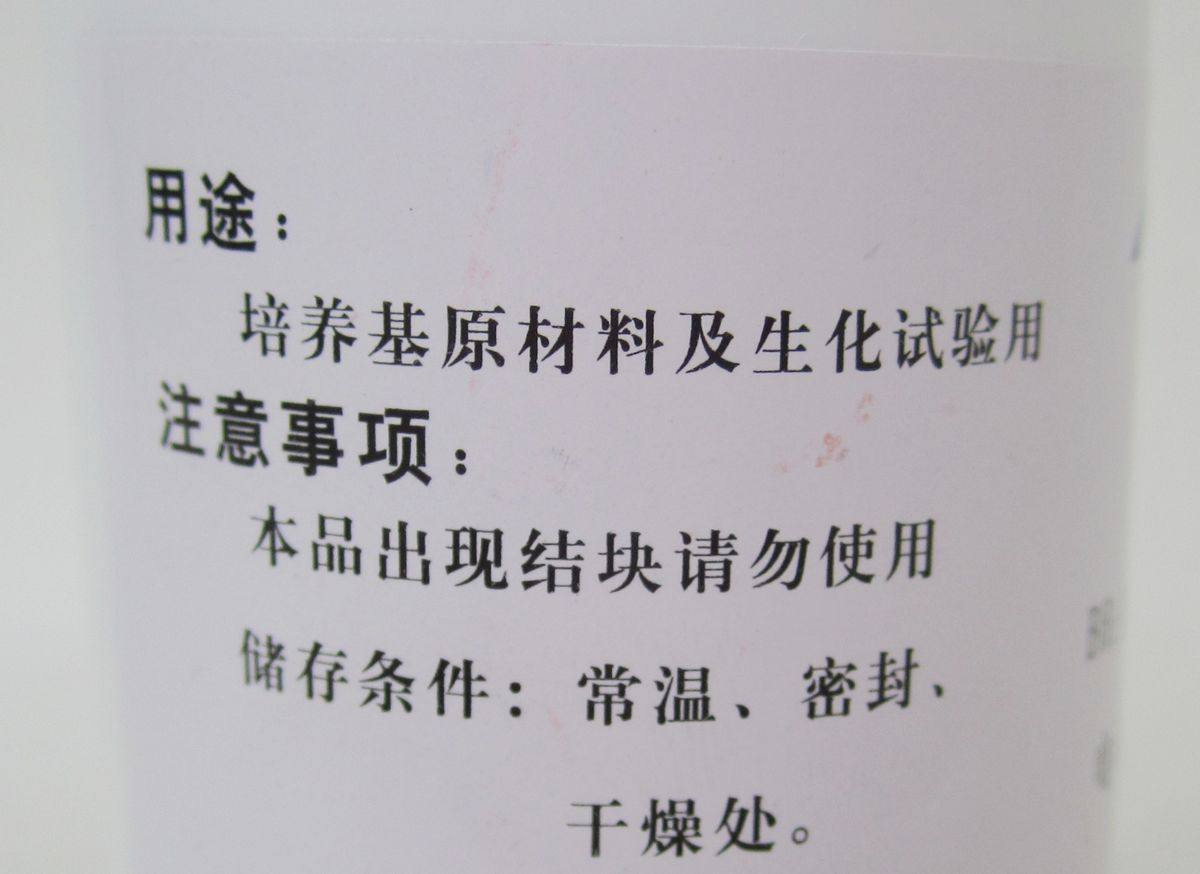 用途：
培养基原材料及生化试验用
注意事项：
本品出现结块请勿使用
储存条件：常温、密封、
干燥处。